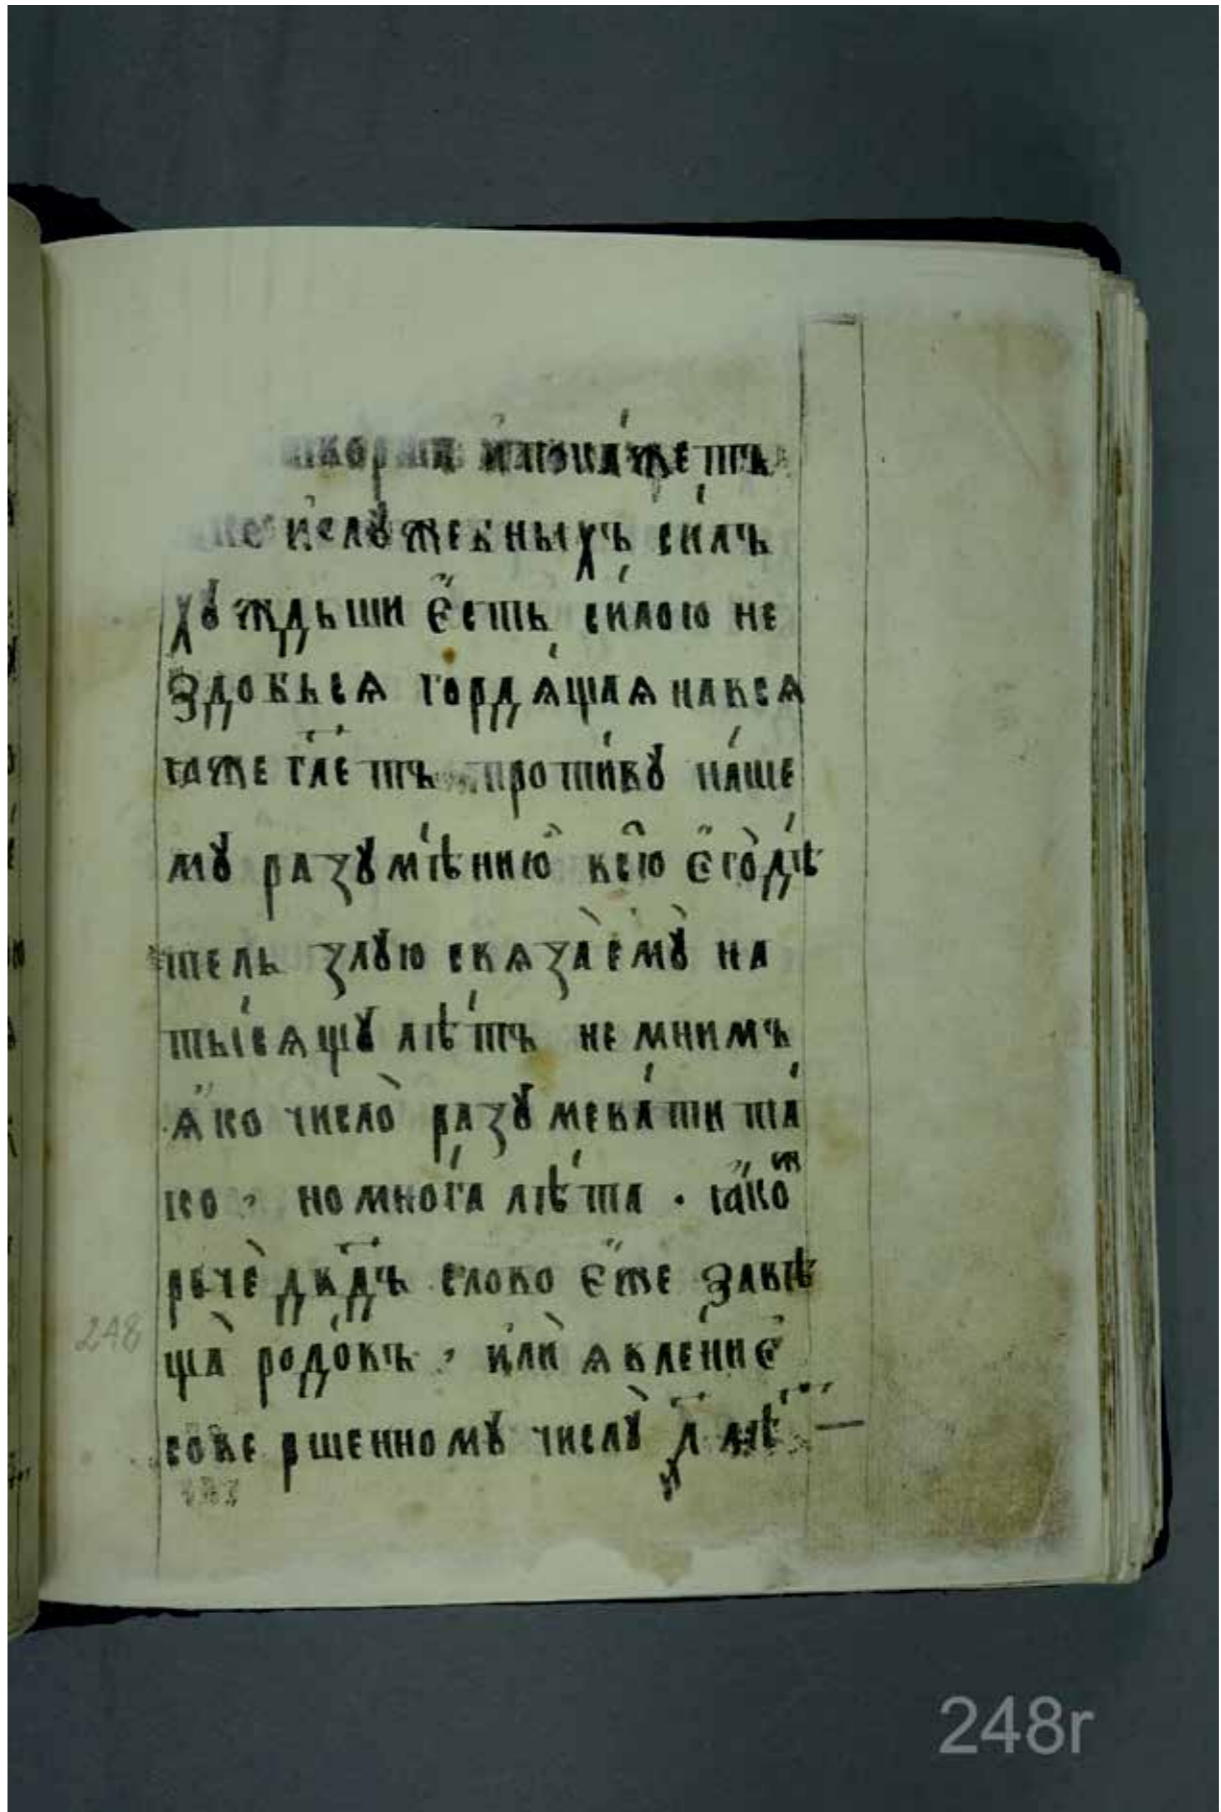 и покажетъ
же и служебныхъ силъ
хꙋждьши є҆сть силою не
здѣвься гордѧ́щаѧ на всѧ
ꙗже гл҃етъ проти́вꙋ на́ше
мꙋ разꙋмѣ́нию всю є҆го̀ дѣ́
тель злꙋю свѧза̀ емꙋ̀ на
ты́сѧщꙋ лѣ́тъ не мнимъ
ѧ҆ко число̀ разꙋмева́ти та́
ко , но мно́га лѣ́та · ꙗ҆коⷤ
речѐ дв҃дъ слово є҆же завѣ
ща̀ родо́въ , и҆лѝ ѧвле́ниє
совершенномꙋ числꙋ̀
248
248r